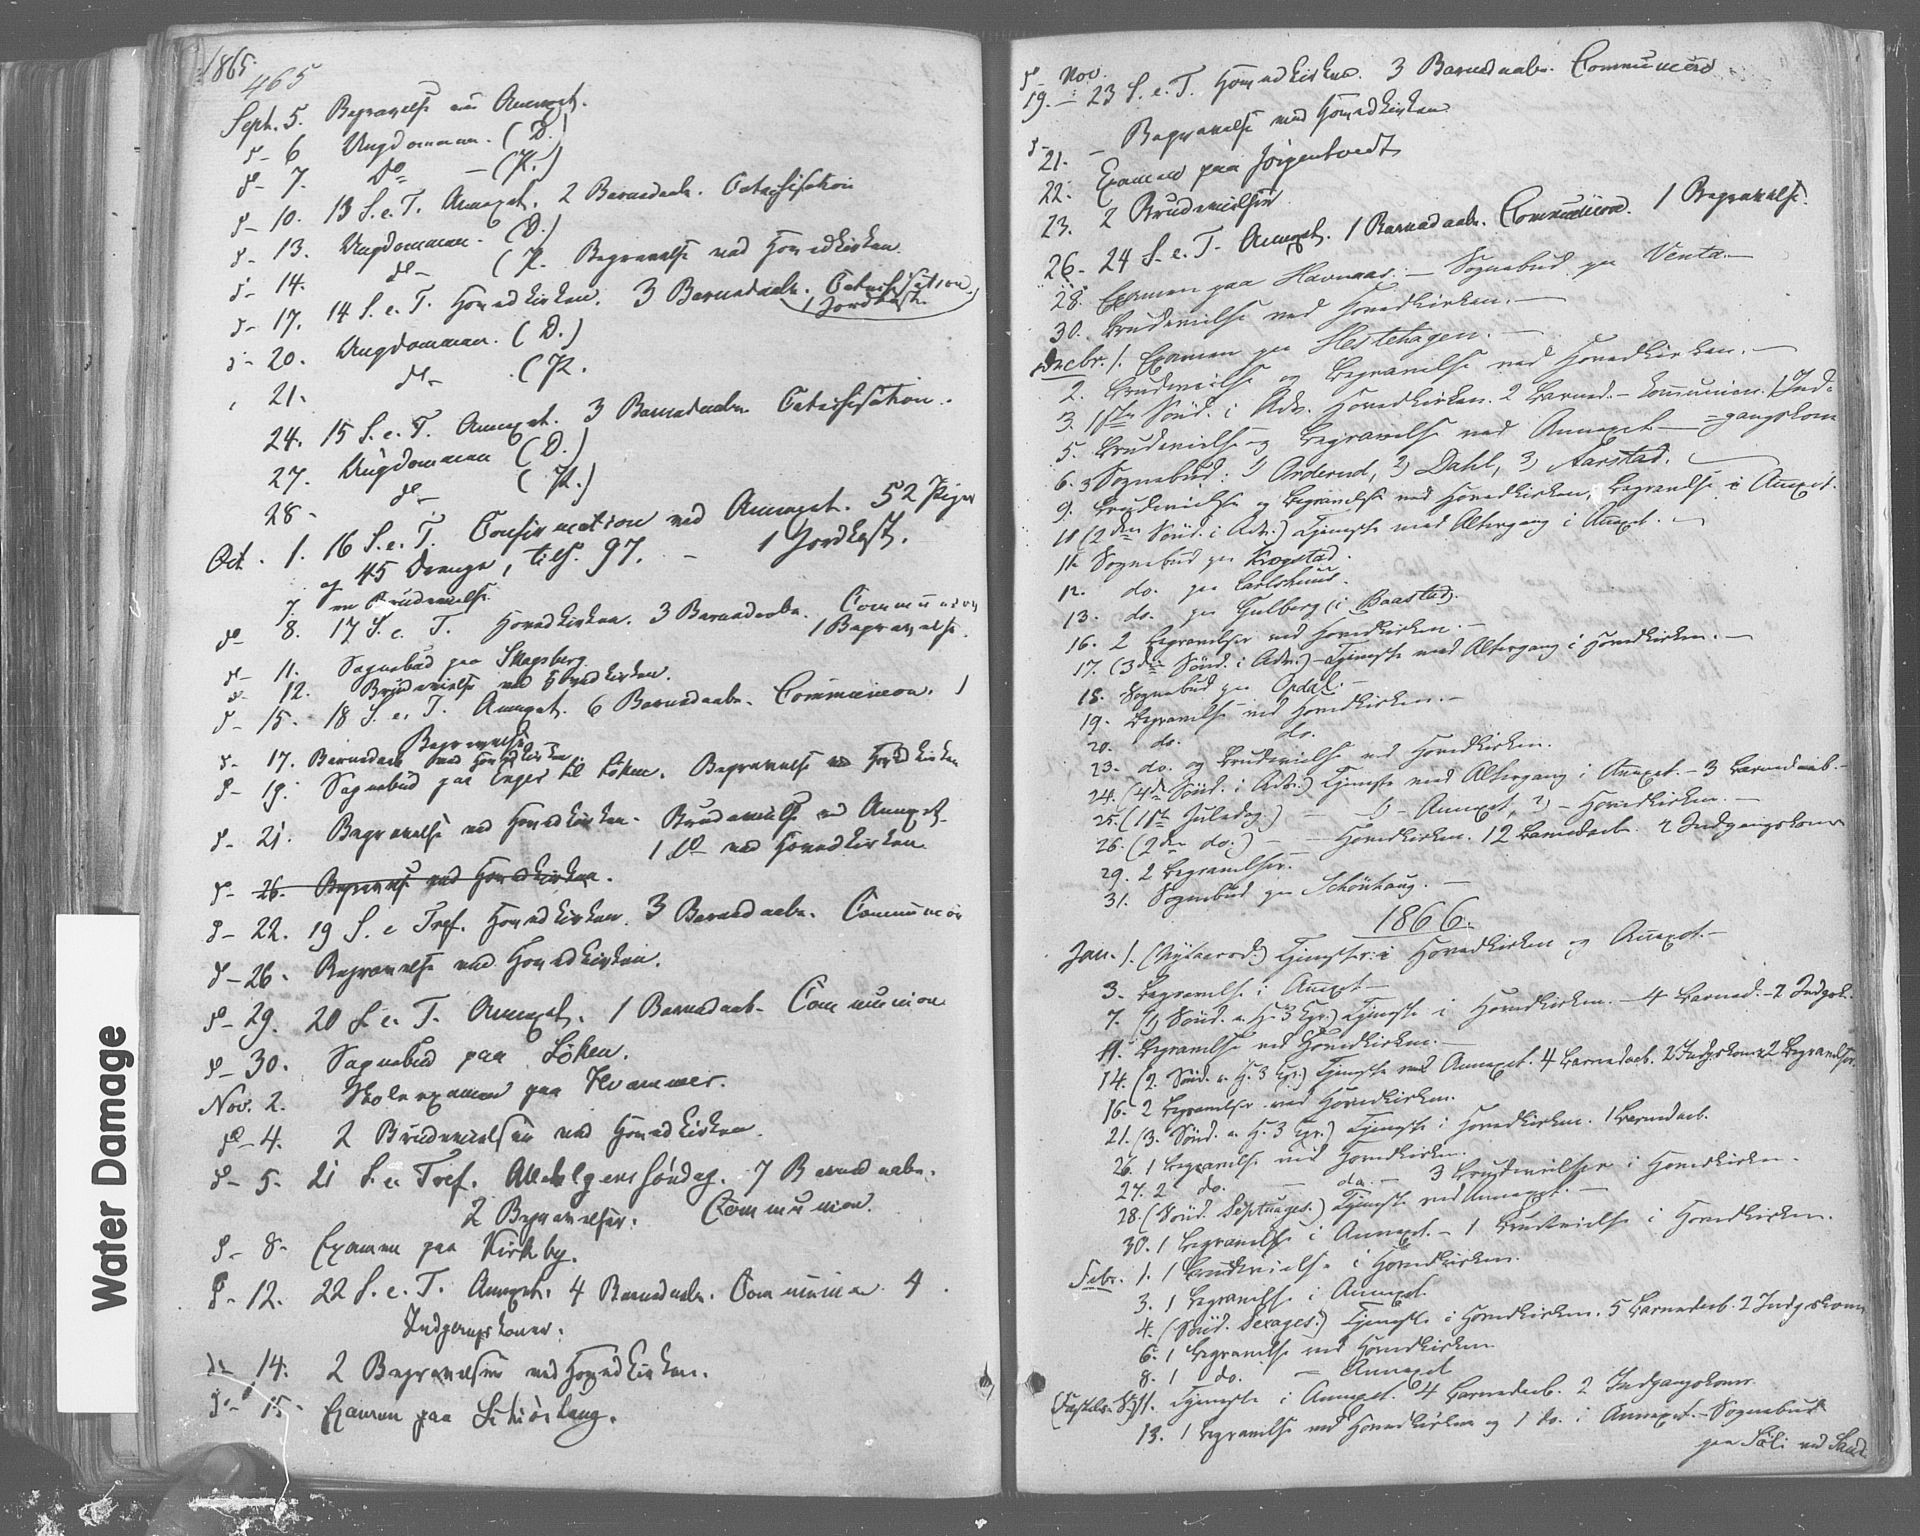 1865.
465
Sept. 5. Begravelse ved Annexet.
d– 6 Ungdommen. (D.)
d– 7. do – (K.)
d– 10. 13 S. e. T. Annexet. 2 Barnedaab. Catechisation
d– 13. Ungdommen. (D.)
d– 14. do– (K. Begravelse ved Hovedkirken.
d– 17. 14 S. e. T. Hovedkirken. 3 Barnedaab. Catechisation.
1 Jordkast.
d– 20. Ungdommen. (D.)
21. do– (K.
24. 15 S. e. T. Annexet. 3 Barnedaab Catechisation.
27. Ungdommen (D.)
28 – do– (K.)
Oct. 1. 16 S. e. T. Confirmation ved Annexet. 52 Piger
og 45 Drenge, tils. 97. – 1 Jordkast.
7. en Brudevielse
d– 8. 17 S. e. T. Hovedkirken. 3 Barnedaab. Communion
1 Begravelse.
d– 11. Sognebud paa Skogsberg.
d– 12. Brudevielse ved Hovedkirken.
d– 15. 18 S. e. T. Annexet. 6 Barnedaab. Communion. 1
Begravelse
d– 17. Barnedaab ved Hovedkirken
d– 19. Sognebud paa Enger til Løken. Begravelse ved Hovedkirken
d– 21. Begravelse ved Hovedkirken. Brudevielse ved Annexet.
1 do ved Hovedkirken
d– 26. Begravelse ved Hovedkirken.
d– 22. 19 S. e Tref. Hovedkirken. 3 Barnedaab. Communion
d– 26. Begravelse ved Hovedkirken.
d– 29. 20 S. e. T. Annexet. 1 Barnedaab. Communion
d– 30. Sognebud paa Løken.
Nov. 2. Skoleexamen paa Hvammer.
d– 4. 2 Brudevielser ved Hovedkirken.
d– 5. 21 S. e. Tref. Allehelgenssøndag. 7 Barnedaab.
2 Begravelser. Communion.
d– 8. Examen paa Kirkeby.
d– 12. 22 S. e. T. Annexet. 4 Barnedaab. Communion 4
Indgangskoner.
d– 14. 2 Begravelser ved Hovedkirken.
d– 15. Examen paa Schiøshaug.
Water Damage
d– Nov.
19. – 23 S. e. T. Hovedkirken. 3 Barnedaab. Communion
d– – Begravelse ved Hovedkirken
21. Examen paa Jörgentvedt
22. 2 Brudevielser
23.
26. 24 S. e. T. Annexet. 1 Barnedaab. Communion. 1 Begravelse.
28. Examen paa Havnaas. – Sognebud paa Venta. –
30. Brudevielse ved Hovedkirken. –
Decbr. 1. Examen paa Hestehagen. –
2. Brudevielse og Begravelse ved Hovedkirken. –
3. 1ste Sönd. i Adv. Hovedkirken. 2 Barned. – Communion. 1 Ind-
5. Brudevielse og Begravelse ved Annexet – =gangskone
6. 3 Sognebud: 1) Orderud, 2) Dahl, 3) Aarstad.
9. Brudevielse og Begravelse ved Hovedkirken, Begravelse i Annexet.
10 (2den Sönd. i Adv.) Tjeneste med Altergang i Annexet. –
11. Sognebud paa Krogstad.
12. do. paa Carlshuus.
13. do. paa Gulberg (i Baastad).
16. 2 Begravelser ved Hovedkirken. –
17. (3die Sönd. i Adv.) – Tjeneste med Altergang i Hovedkirken. –
18. Sognebud paa Opdal. –
19. Begravelse ved Hovedkirken. –
20. do. do.
23. do. og Brudevielse ved Hovedkirken.
24. (4de Sönd. i Adv.) Tjeneste med Altergang i Annexet. – 3 Barnedaab. –
25. (1ste Juledag.) – 1) – Annexet, 2) – Hovedkirken. –
26. (2den do.) – – Hovedkirken. 12 Barnedaab. 2 Indgangskoner
29. 2 Begravelser.
31. Sognebud paa Schönhaug. –
1866.
Jan. 1. (Nytaarsd.) Tjeneste i Hovedkirken og Annexet. –
3. Begravelse i Annexet –
7. (1 Sönd. e. H. 3 Kgr.) Tjeneste i Hovedkirken. – 4 Barned. – 2 Indgsk.
11. Begravelse ved Hovedkirken. –
14. (2. Sönd. e. H. 3 Kgr.) Tjeneste ved Annexet. 4 Barnedaab. 2 Indgskoner 2 Begravelser.
16. 2 Begravelser ved Hovedkirken.
21. (3. Sönd. e. H. 3 Kgr.) Tjeneste i Hovedkirken. 1 Barnedaab.
26. 1 Begravelse ved Hovedkirken.
27. 2 do. – do. – 3 Brudevielser i Hovedkirken.
28. (Sönd. Septuages.) Tjeneste ved Annexet. –
30. 1 Begravelse i Annexet. – 1 Brudevielse i Hovedkirken.
Febr. 1. 1 Brudevielse i Hovedkirken.
3. 1 Begravelse i Annexet.
4. (Sönd. Sexages.) Tjeneste i Hovedkirken. 5 Barnedaab. 2 Indgskoner
6. 1 Begravelse ved Hovedkirken
8. 1 do. – Annexet
(Fastelv. S.) 11. Tjeneste i Annexet. 4 Barnedaab. 2 Indgangskoner
13. 1 Begravelse ved Hovedkirken og 1 do. i Annexet. – Sognebud
paa Sæli ved Sand.